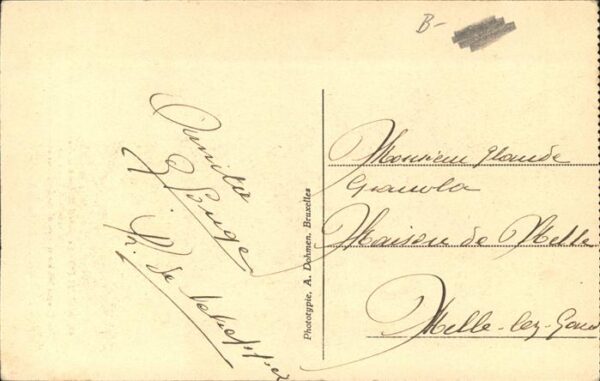 B-
Amitié
Rouge
R. de
Phototypie, A. Dohmen, Bruxelles
Monsieur Glaude
Granola
Maison de Melle
Melle-lez-Gand